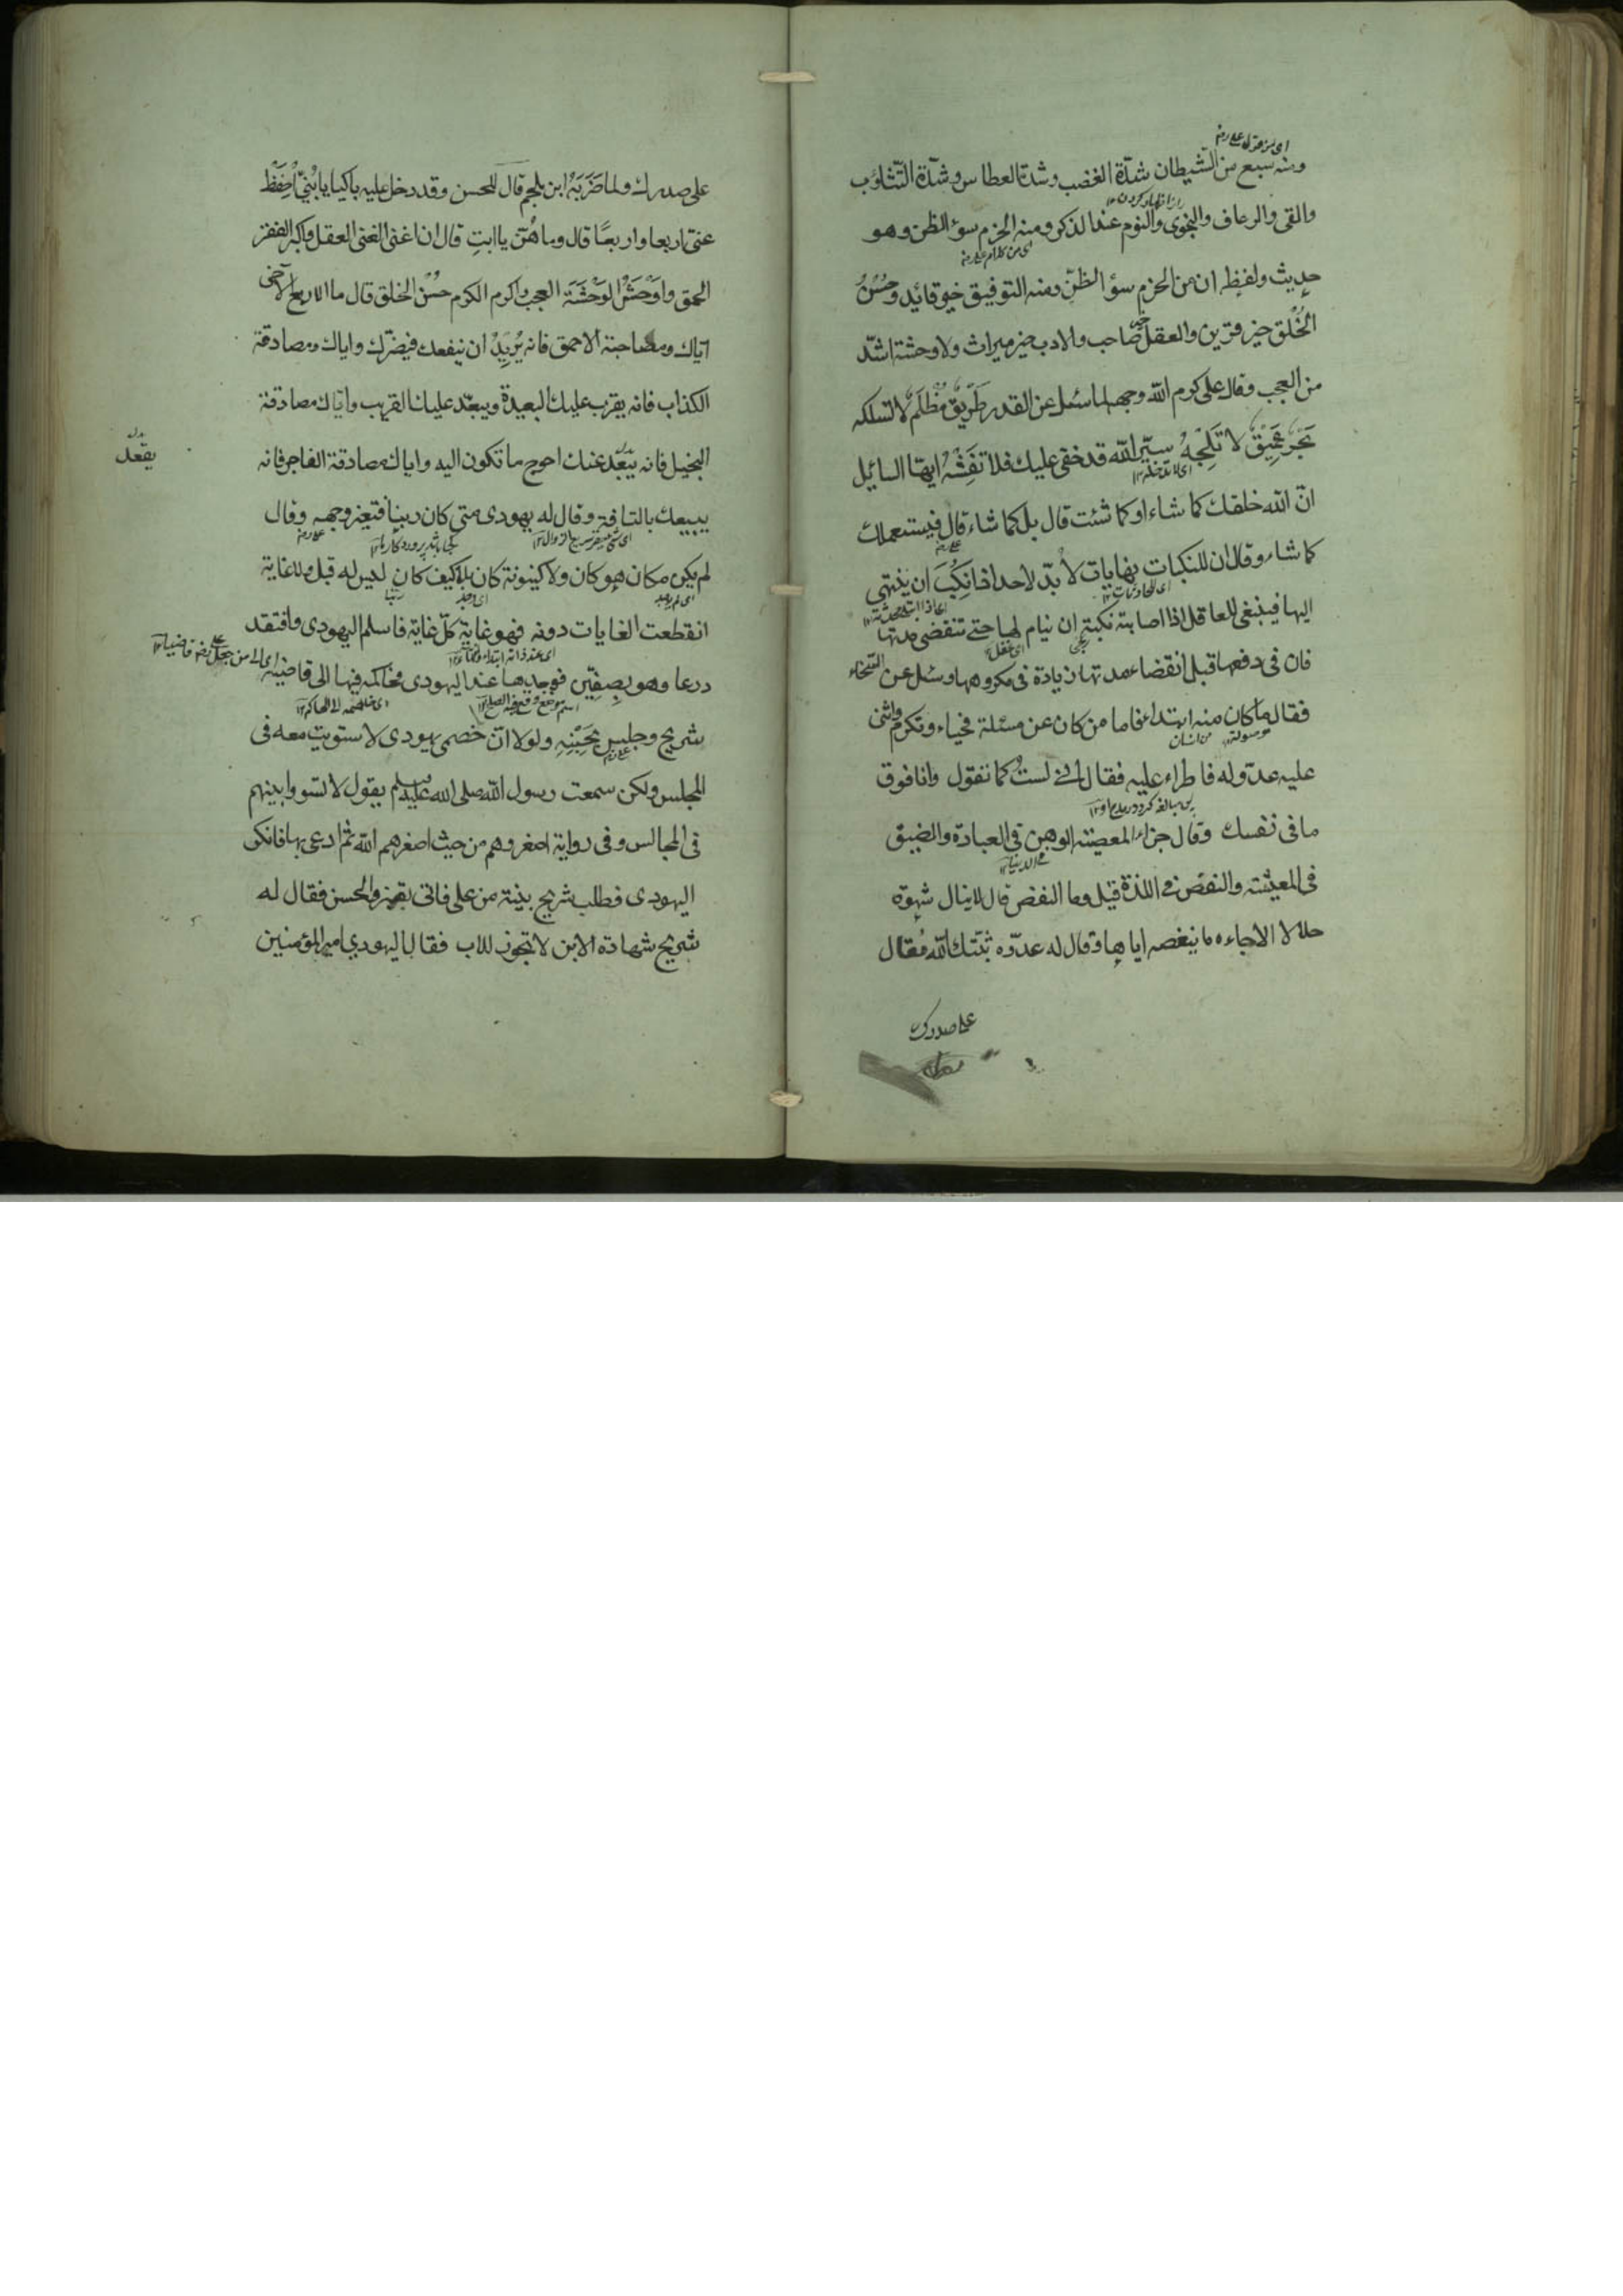 ومنه سبع من الشيطان شدّة الغضب وشدة العطاس وشدّة التثاؤب
والقى والرعاف والنجوى والنوم عند الذكر ومنه الحزم سوء الظن وهو
حديث ولفظه ان من الحزم سؤ الظنّ ومنه التوفيق خير قائد وحسن
الخلق خير قرين والعقل خير صاحب والادب خير ميراث ولا وحشة اشدّ
من العجب وقال على كرم الله وجهه لما سئل عن القدر طريق مظلم لا تسلكه
بحر عميق لا تلجه سرّ الله قد خفى عليك فلا تفشه ايها السايل
انّ الله خلقك كما شاء او كما شئت قال بل كما شاء قال فيستعملك
كما شاء وقال ان للنكبات نهايات لا بدّ لاحد اذا نكب ان ينتهى
اليها فينبغى للعاقل اذا اصابته نكبة ان ينام لها حتى تنقضى مدتها
فان فى دفعها قبل انقضاء مدتها زيادة فى مكروهها وسئل عن السخاء
فقال ما كان منه ابتداء فاما من كان عن مسئلة فحياء وتكرم واثنى
عليه عدوّ له فاطراء عليه فقال انى لست كما تقول وانا فوق
ما فى نفسك وقال جزاء المعصية الوهن فى العبادة والضيق
فى المعيشة والنغص فى اللذة قيل وما النغص قال لا ينال شهوة
حلالا الا جاءه ما ينغصه اياها وقال له عدوّه ثبتك الله فقال
على صدرك
على صدرك ولما ضربه ابن ملجم قال للحسن وقد دخل عليه باكيا يا بنىّ احفظ
عنى اربعا واربعا قال وما هنّ يا ابت قال ان اغنى الغنى العقل واكبر الفقر
الحمق واوحش الوحشة العجب واكرم الكرم حسن الخلق قال ما الاربع الآخر
اياك ومصاحبة الاحمق فانه يريد ان ينفعك فيضرّك واياك ومصادقة
الكذاب فانه يقرب عليك البعيدة ويبعّد عليك القريب واياك مصادقة
البخيل فانه يبعّد عنك احوج ما تكون اليه واياك مصادقة الفاجر فانه
يقعد
يبيعك بالتافة وقال له يهودى متى كان ربنا فتغير وجهه وقال
لم يكن مكان هو كان ولا كينونة كان بلا كيف كان ليس له قبل ولا غاية
انقطعت الغايات دونه فهو غاية كلّ غاية فاسلم اليهودى وافتقد
درعا وهو بصفّين فوجدها عند اليهودى فحاكمه فيها الى قاضيه
شريح وجلس بجنبه ولولا انّ خصمى يهودى لاستويت معه فى
المجلس ولكن سمعت رسول الله صلى الله عليه وسلم يقول لا تسووا بينهم
فى المجالس وفى رواية اصغروهم من حيث اصغرهم الله ثم ادعى بها فانكر
اليهودى فطلب شريح بينة من على فاتى بقنبر والحسن فقال له
شريح شهادة الابن لا تجوز للاب فقال اليهودي امير المؤمنين